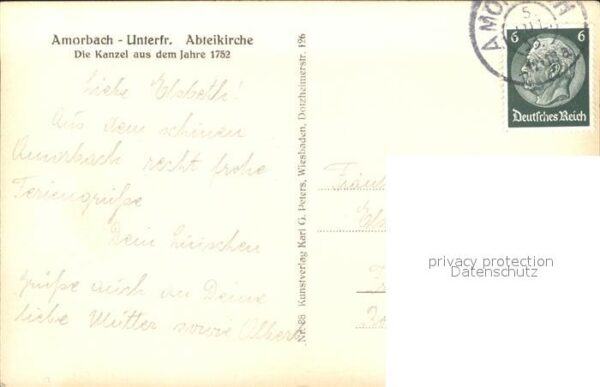 Amorbach - Unterfr. Abteikirche
Die Kanzel aus dem Jahre 1752
Liebe Elsbeth!
Aus dem schönen
Amorbach recht frohe
Feriengrüße
Dein Luischen
Grüße auch an Deine
liebe Mutter sowie Albert
Nr. 88 Kunstverlag Karl G. Peters, Wiesbaden, Dotzheimerstr. 126
6 6
Deutsches Reich
privacy protection
Datenschutz